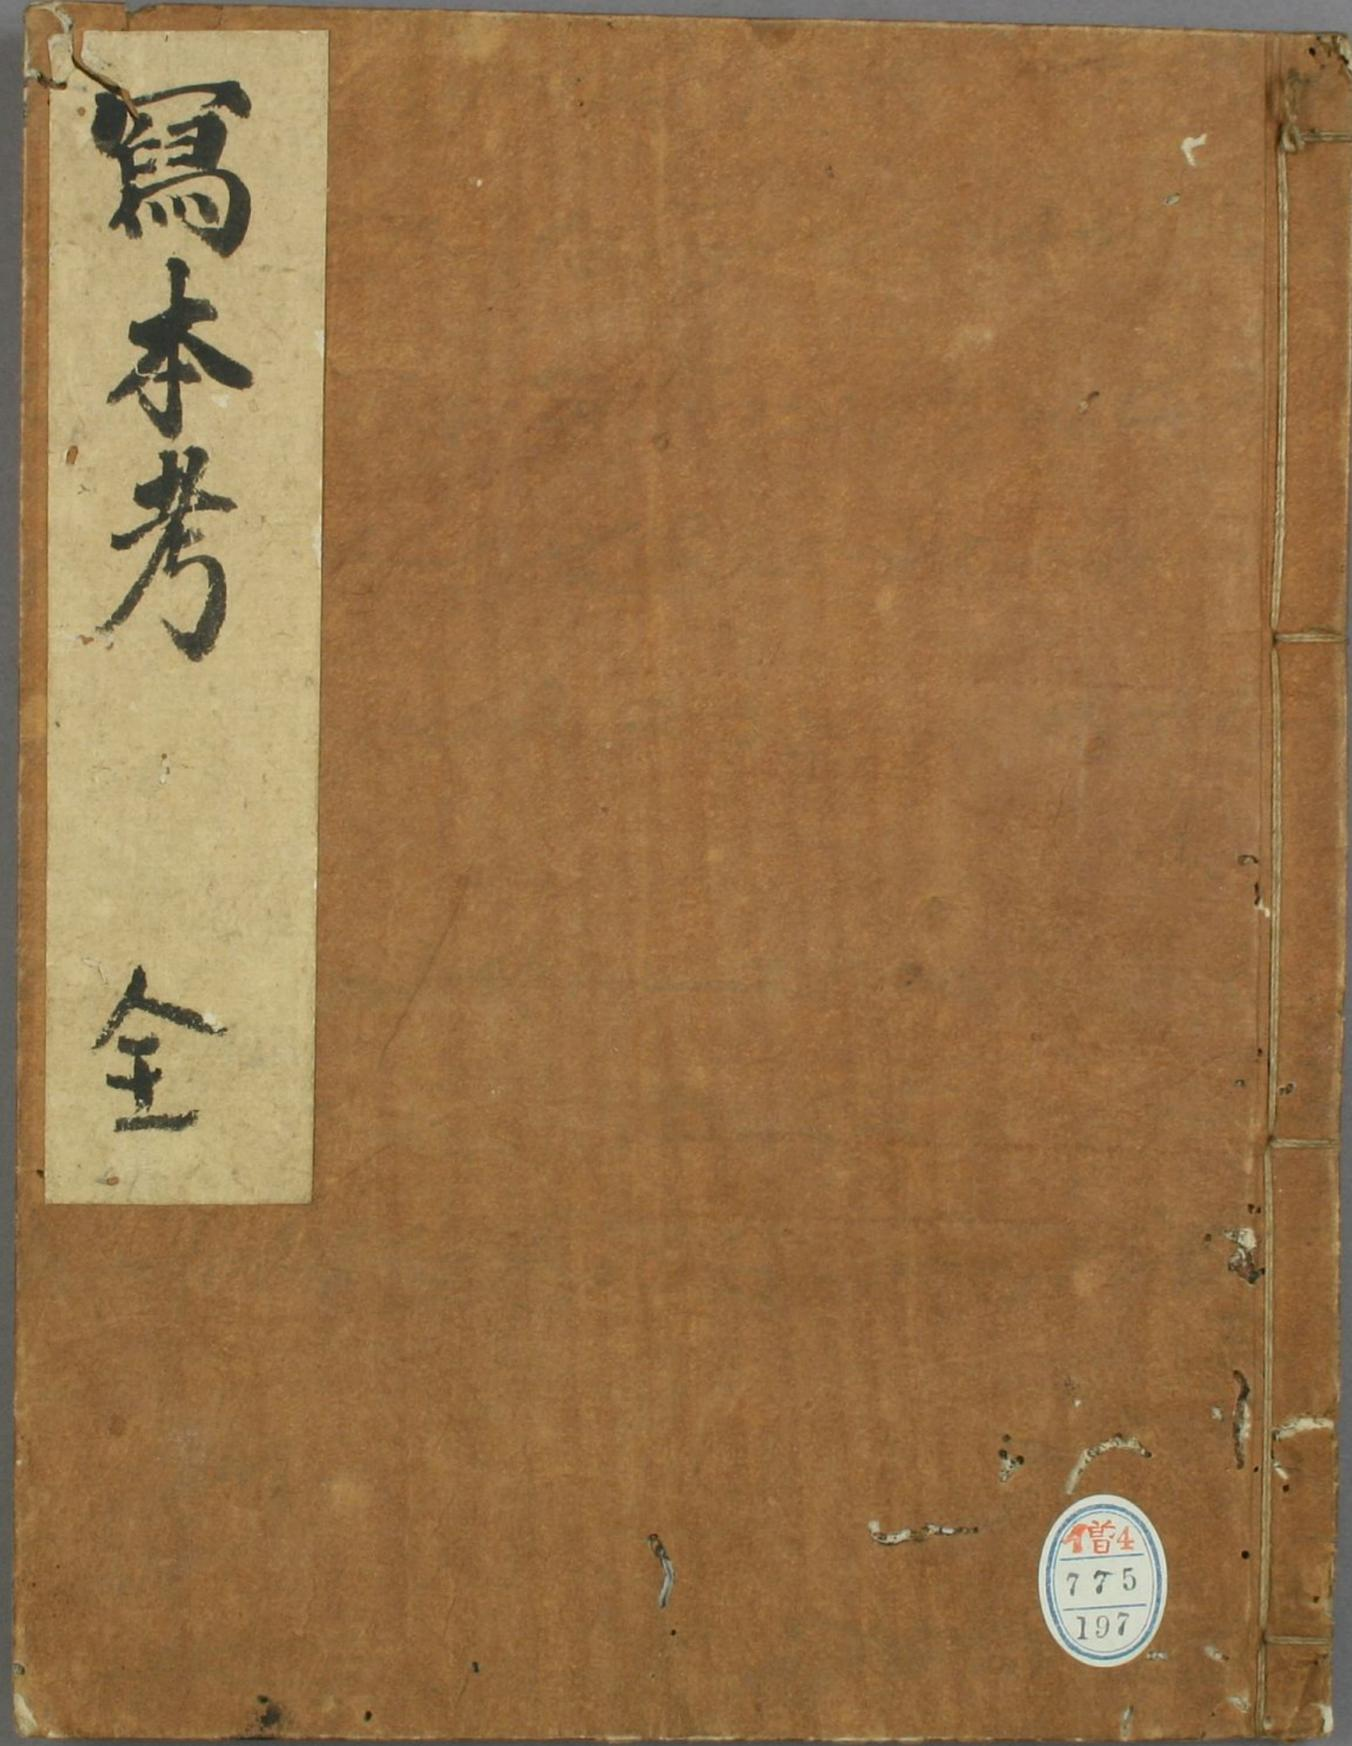 寫本考　全
僧4
775
197